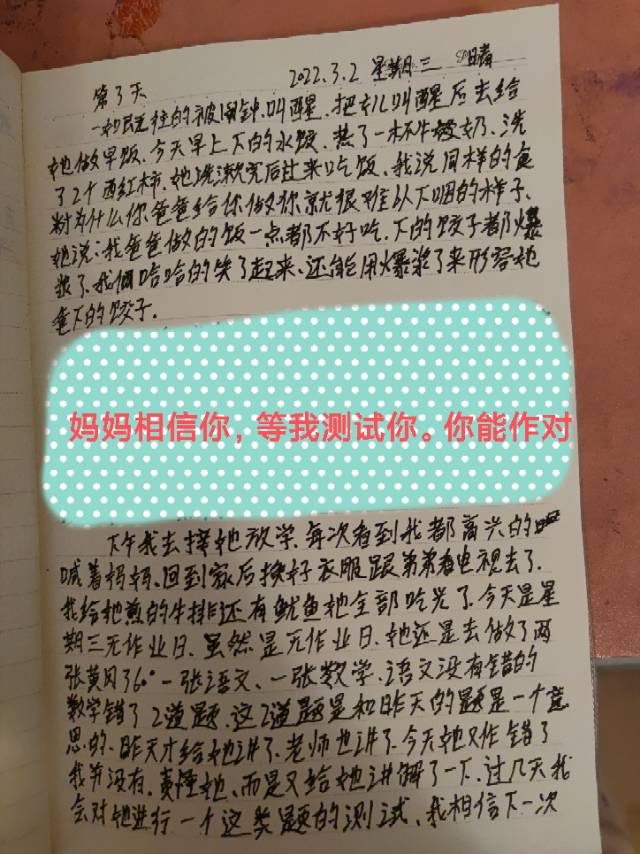 第3天 2022.3.2 星期三 晴
一如既往的被闹钟叫醒.把女儿叫醒后去给
她做早饭.今天早上下的水饺.热了一杯牛奶.洗
了2个西红柿.她洗漱完后过来吃饭.我说同样的食
材为什么你爸爸给你做你就很难以下咽的样子.
她说:我爸爸做的饭一点都不好吃.下的饺子都爆
浆了.我俩哈哈的笑了起来.还能用爆浆了来形容她
爸下的饺子.
妈妈相信你，等我测试你。你能作对
下午我去接她放学.每次看到我都高兴的
喊着妈妈.回到家后换好衣服跟弟弟看电视去了.
我给她煎的牛排还有鱿鱼她全部吃光了.今天是星
期三无作业日.虽然是无作业日.她还是去做了两
张黄冈360°一张语文、一张数学.语文没有错的
数学错了2道题.这2道题是和昨天的题是一个意
思的.昨天才给她讲了.老师也讲了.今天她又作错了
我并没有.责怪她.而是又给她讲解了一下.过几天我
会对她进行一个这类题的测试.我相信下一次